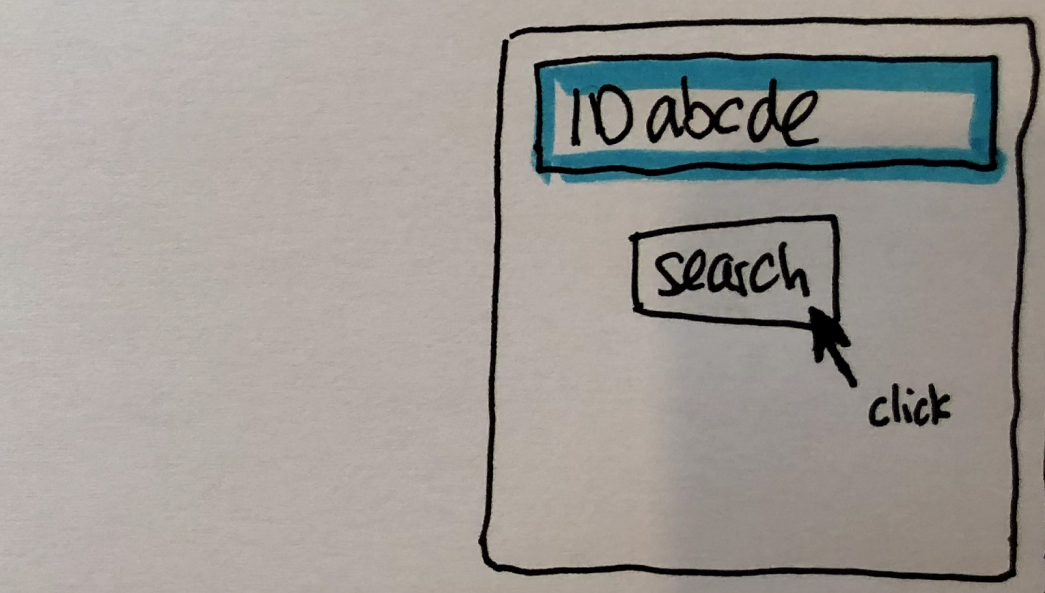 ID abcde
search
click